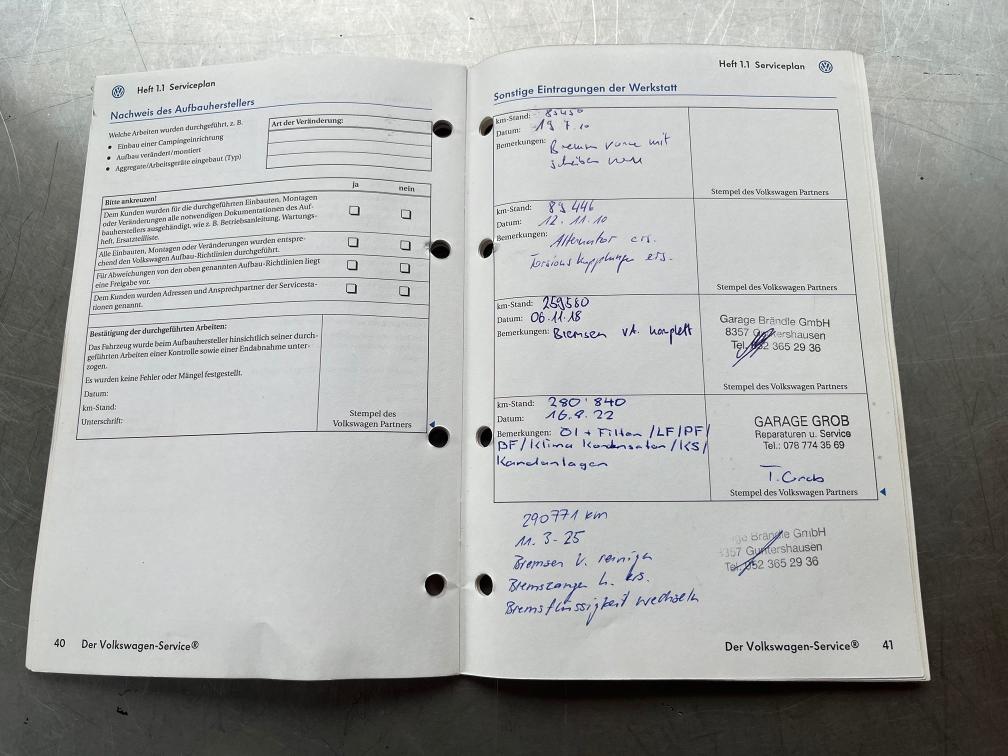 Heft 1.1 Serviceplan
Nachweis des Aufbauherstellers
Welche Arbeiten wurden durchgeführt, z. B.
• Einbau einer Campingeinrichtung
• Aufbau verändert/montiert
• Aggregate/Arbeitsgeräte eingebaut (Typ)
Art der Veränderung:
Bitte ankreuzen!
ja
nein
Dem Kunden wurden für die durchgeführten Einbauten, Montagen
oder Veränderungen alle notwendigen Dokumentationen des Auf-
bauherstellers ausgehändigt, wie z. B. Betriebsanleitung, Wartungs-
heft, Ersatzteilliste.
Alle Einbauten, Montagen oder Veränderungen wurden entspre-
chend den Volkswagen Aufbau-Richtlinien durchgeführt.
Für Abweichungen von den oben genannten Aufbau-Richtlinien liegt
eine Freigabe vor.
Dem Kunden wurden Adressen und Ansprechpartner der Servicesta-
tionen genannt.
Bestätigung der durchgeführten Arbeiten:
Das Fahrzeug wurde beim Aufbauhersteller hinsichtlich seiner durch-
geführten Arbeiten einer Kontrolle sowie einer Endabnahme unter-
zogen.
Es wurden keine Fehler oder Mängel festgestellt.
Datum:
km-Stand:
Unterschrift:
Stempel des
Volkswagen Partners
40 Der Volkswagen-Service®
Heft 1.1 Serviceplan
Sonstige Eintragungen der Werkstatt
km-Stand:
Datum: 19.7.10
Bemerkungen: Bremsen vorne mit
scheiben neu
Stempel des Volkswagen Partners
km-Stand: 89 446
Datum: 12.11.10
Bemerkungen: Alternator ers.
Torsionskupplungen ers.
Stempel des Volkswagen Partners
km-Stand: 259580
Datum: 06.11.18
Bemerkungen: Bremsen vA. komplett
Garage Brändle GmbH
8357 Guntershausen
Tel. 052 365 29 36
Stempel des Volkswagen Partners
km-Stand: 280'840
Datum: 16.8.22
Bemerkungen: Öl + Filter /LF/PF/
BF/Klima Kondensator/KS/
GARAGE GROB
Reparaturen u. Service
Tel.: 078 774 35 69
T. Grob
Stempel des Volkswagen Partners
290771 km
11.3-25
Bremsen V. reinigen
Bremszangen h. ers.
Bremsflüssigkeit wechseln
Brändle GmbH
8357 Guntershausen
Tel. 052 365 29 36
Der Volkswagen-Service® 41